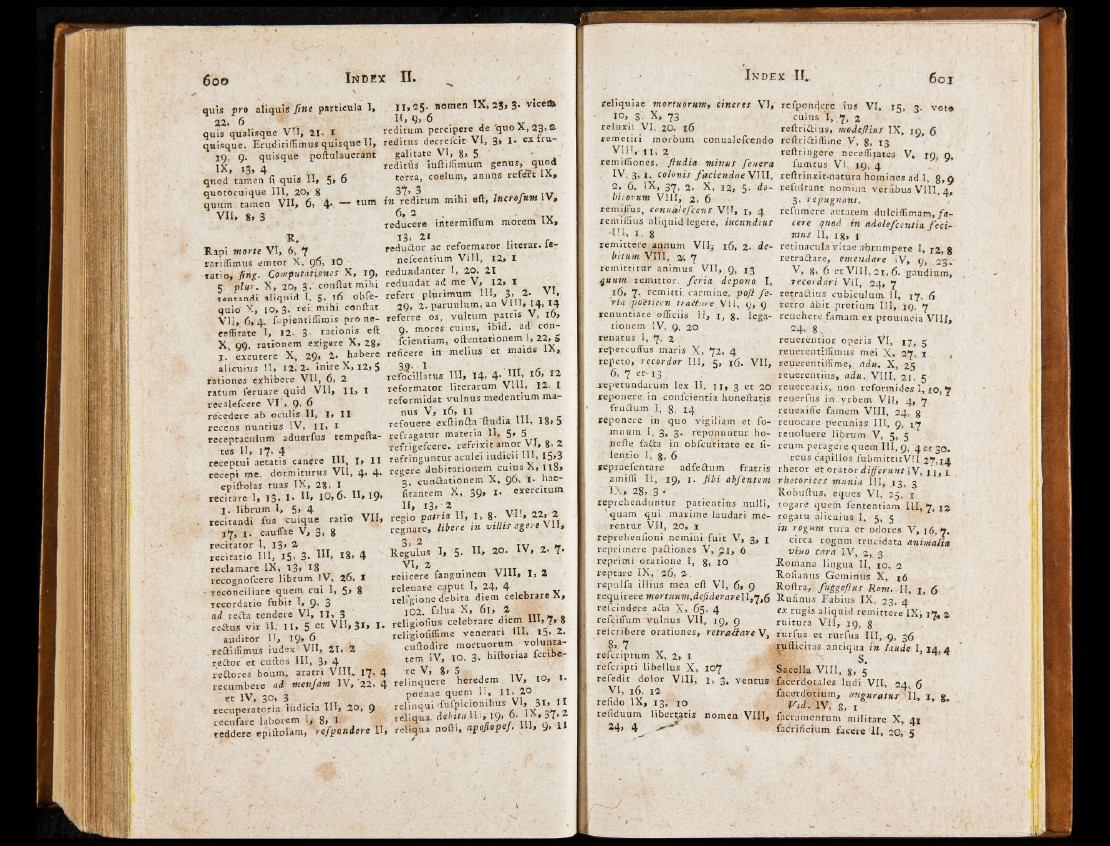 600 INDEX II.
quis pro aliquis ſine particula I,
22, 6
quis qualisque VII, 21. 1
quisque. Eruditiſſimus quisque II,
19. 9. quisque poſtulauerant
IX, 13, 4
quod tamen ſi quis II, 5, 6
quotocuique III, 20, 8
quum tamen VII, 6, 4. — tum
VII, 8, 3
R.
Rapi morte VI, 6, 7
rariſſimus emtor X. 96, 10
ratio, ſing. Computationes X, 19,
5. plur. X, 20, 3. conſtat mihi
tentandi aliquid I, 5. 16 obſe-
quio X, 10, 3. rei mihi conſtat
VII, 6, 4. ſapientiſſimis pro ne-
ceſſitate I, 12. 3. rationis eſt
X, 99. rationem exigere X, 28,
1. excutere X, 29, 2. habere
alicuius II, 12, 2. inire X, 12, 5
rationes exhibere VII, 6, 2
ratum ſeruare quid VII, 11, 1
recaleſcere VI, 9. 6
recedere ab oculis II, 1, 11
recens nuntius IV, 11, 1
receptaculum aduerſus tempeſta-
tes II, 17. 4
receptui aetatis canere III, 1, 11
recepi me. dormiturus VII, 4, 4.
epiſtolas tuas IX, 28, 1
recitare I, 13, 1. II, 10, 6. II, 19,
1. librum I, 5, 4
recitandi ſua cuique ratio VII,
17, 1. cauſſae V, 3, 8
recitator I, 13, 2
recitatio III, 15, 3. III, 18, 4
reclamare IX, 13, 18
recognoſcere librum IV, 26, 1
reconciliare quem cui I, 5, 8
recordatio ſubit I, 9. 3
ad recta tendere VI, 11, 3
rectus vir II, 11, 5 et VII, 31, 1.
auditor II, 19, 6
rectiſſimus iudex VII, 21, 2
rector et cuſtos III, 3, 4
rectores boum, aratri VIII, 17, 4
recumbere ad menſam IV, 22, 4
et IV, 30, 3
recuperatoria iudicia III, 20, 9
recuſare laborem I, 8, 1
reddere epiſtolam, reſpondere II,
11, 25. nomen IX, 28, 3. vicem
II, 9, 6
reditum percipere de quo X, 23, 2
reditus decreſcit VI, 3, 1. ex fru-
galitate VI, 8, 5
reditûs iuſtiſſimum genus, quod
terra, coelum, annus refert IX,
37, 3
in reditum mihi eſt, lucroſum IV,
6, 2
reducere intermiſſum morem IX,
13, 21
reductor ac reformator literar. ſe-
neſcentium VIII, 12, 1
redundanter I, 20. 21
redundat ad me V, 12, 1
refert plurimum III, 3, 2. VI,
29, 2. paruulum, an VIII, 14, 14
referre os, vultum patris V, 16,
9. mores cuius, ibid. ad con-
ſcientiam, oſtentationem I, 22, 5
reficere in melius et maius IX,
39. 1
refocillatus III, 14, 4. III, 16, 12
reformator literarum VIII, 12. 1
reformidat vulnus medentium ma-
nus V, 16, 11
refouere exſtincta ſtudia III, 18, 5
refragatur materia II, 5, 5
refrigeſcere, refrixit amor VI, 8, 2
refringuntur aculei iudicii III, 15, 3
regere dubitationem cuius X, 118,
3. cunctationem X, 96, 1. hae-
ſitantem X, 39, 1. exercitum
II, 13, 2
regio patria II, 1, 8. VII, 22, 2
regnare, libere in villis agere VII,
3, 2
Regulus I, 5. II, 20. IV, 2. 7.
VI, 2
reiicere ſanguinem VIII, 1, 2
releuare caput I, 24, 4
religione debita diem celebrare X,
102. ſalua X, 61, 2
religioſius celebrare diem III, 7, 8
religioſiſſime venerari III, 15, 2.
cuſtodire mortuorum volunta-
tem IV, 10. 3. hiſtorias ſcribe-
re V, 8, 5
relinquere heredem IV, 10, 1.
poenae quem II, 11, 20
relinqui ſuſpicionibus VI, 31, 11
reliqua. debita III, 19, 6. IX, 37, 2
reliqua noſti, apoſiopeſ. III, 9, 11
INDEX II. 601
reliquiae mortuorum, cineres VI,
10, 3. X, 73
reluxit VI. 20. 16
remetiri morbum conualeſcendo
VIII, 11, 2
remiſſiones, ſtudia minus ſeuera
IV, 3, 1. colonis faciendae VIII,
2, 6. IX, 37, 2. X, 12, 5. de-
bitorum VIII, 2, 6
remiſſus, conualeſcens VII, 1, 4
remiſſius aliquid legere, iucundius
III, 1, 8
remittere annum VII, 16, 2. de-
bitum VIII, 2, 7
remittitur animus VII, 9, 13
quum remittor. ſeria depono I,
16, 7. remitti carmine, poſt ſe-
ria poeticen tractare VII, 9, 9
renuntiare officiis II, 1, 8. lega-
tionem IV, 9, 20
renatus I, 7. 2
repercuſſus maris X, 72, 4
repeto, recordor III, 5, 16. VII,
6, 7 et 13
repetundarum lex II, 11, 3 et 20
reponere in conſcientia honeſtatis
fructum I, 8, 14
reponere in quo vigiliam et ſo-
mnum I, 3, 3. reponuntur ho-
neſte facta in obſcuritate et ſi-
lentio I, 8, 6
repraeſentare adfectum fratris
amiſſi II, 19, 1. ſibi abſentem
IX, 28, 3
reprehenduntur patientius nulli,
quam qui maxime laudari me-
rentur VII, 20, 1
reprehenſioni nemini fuit V, 3, 1
reprimere pactiones V, 21, 6
reprimi oratione I, 8, 10
reptare IX, 26, 2
repulſa illius mea eſt VI, 6, 9
requirere mortuum, deſiderare II, 7, 6
reſcindere acta X, 65, 4
reſciſſum vulnus VII, 19, 9
reſcribere orationes, retractare V,
8, 7
reſcriptum X, 2, 1
reſcripti libellus X, 107
reſedit dolor VIII, 1, 3. ventus
VI, 16, 12
reſido IX, 13, 10
reſiduum libertatis nomen VIII,
24, 4
reſpondere ius VI, 15, 3. voto
cuius I, 7, 2
reſtrictius, modeſtius IX, 19, 6
reſtrictiſſime V, 8, 13
reſtringere neceſſitates V, 19, 9.
ſumtus VI, 19, 4
reſtrinxit natura homines ad I, 8, 9
reſultant nomina verſibus VIII, 4,
3. repugnant.
reſumere aetatem dulciſſimam, fa-
cere quod in adoleſcentia feci-
mus II, 18, 1
retinacula vitae abrumpere I, 12, 8
retractare, emendare IV, 9, 23.
V, 8, 6 et VIII, 21, 6. gaudium,
recordari VII, 24, 7
retractius cubiculum II, 17, 6
retro abit pretium III, 19, 7
reuehere famam ex prouincia VIII,
24, 8
reuerentior operis VI, 17, 5
reuerentiſſimus mei X, 27, 1
reuerentiſſime, adu. X, 25
reuerentius, adu. VIII, 21, 5
reuerearis, non reformides I, 10, 7
reuerſus in vrbem VII, 4, 7
reuexiſſe famem VIII, 24, 8
reuocare pecunias III, 9, 17
reuoluere librum V, 5, 5
reum peragere quem III, 9, 4 et 30.
reus capillos ſubmittit VII, 27, 14
rhetor et orator differunt IV, 11, 1
rhetorices munia III, 13, 3
Robuſtus, eques VI, 25, 1
rogare quem ſententiam III, 7, 12
rogatu alicuius I, 5, 5
in rogum tura et odores V, 16, 7.
circa rogum trucidata animalia
viuo cara IV, 2, 3
Romana lingua II, 10, 2
Roſianus Geminus X, 16
Roſtra, ſuggeſtus Rom. II, 1, 6
Rufinus Fabius IX, 23, 4
ex rugis aliquid remittere IX, 17, 2
ruitura VII, 19, 8
rurſus et rurſus III, 9, 36
ruſticitas antiqua in laude I, 14, 4
S.
Sacella VIII, 8, 5
ſacerdotales ludi VII, 24, 6
ſacerdotium, auguratus II, 1, 8.
Vid. IV, 8, 1
ſacramentum militare X, 41
ſacrificium facere II, 20, 5